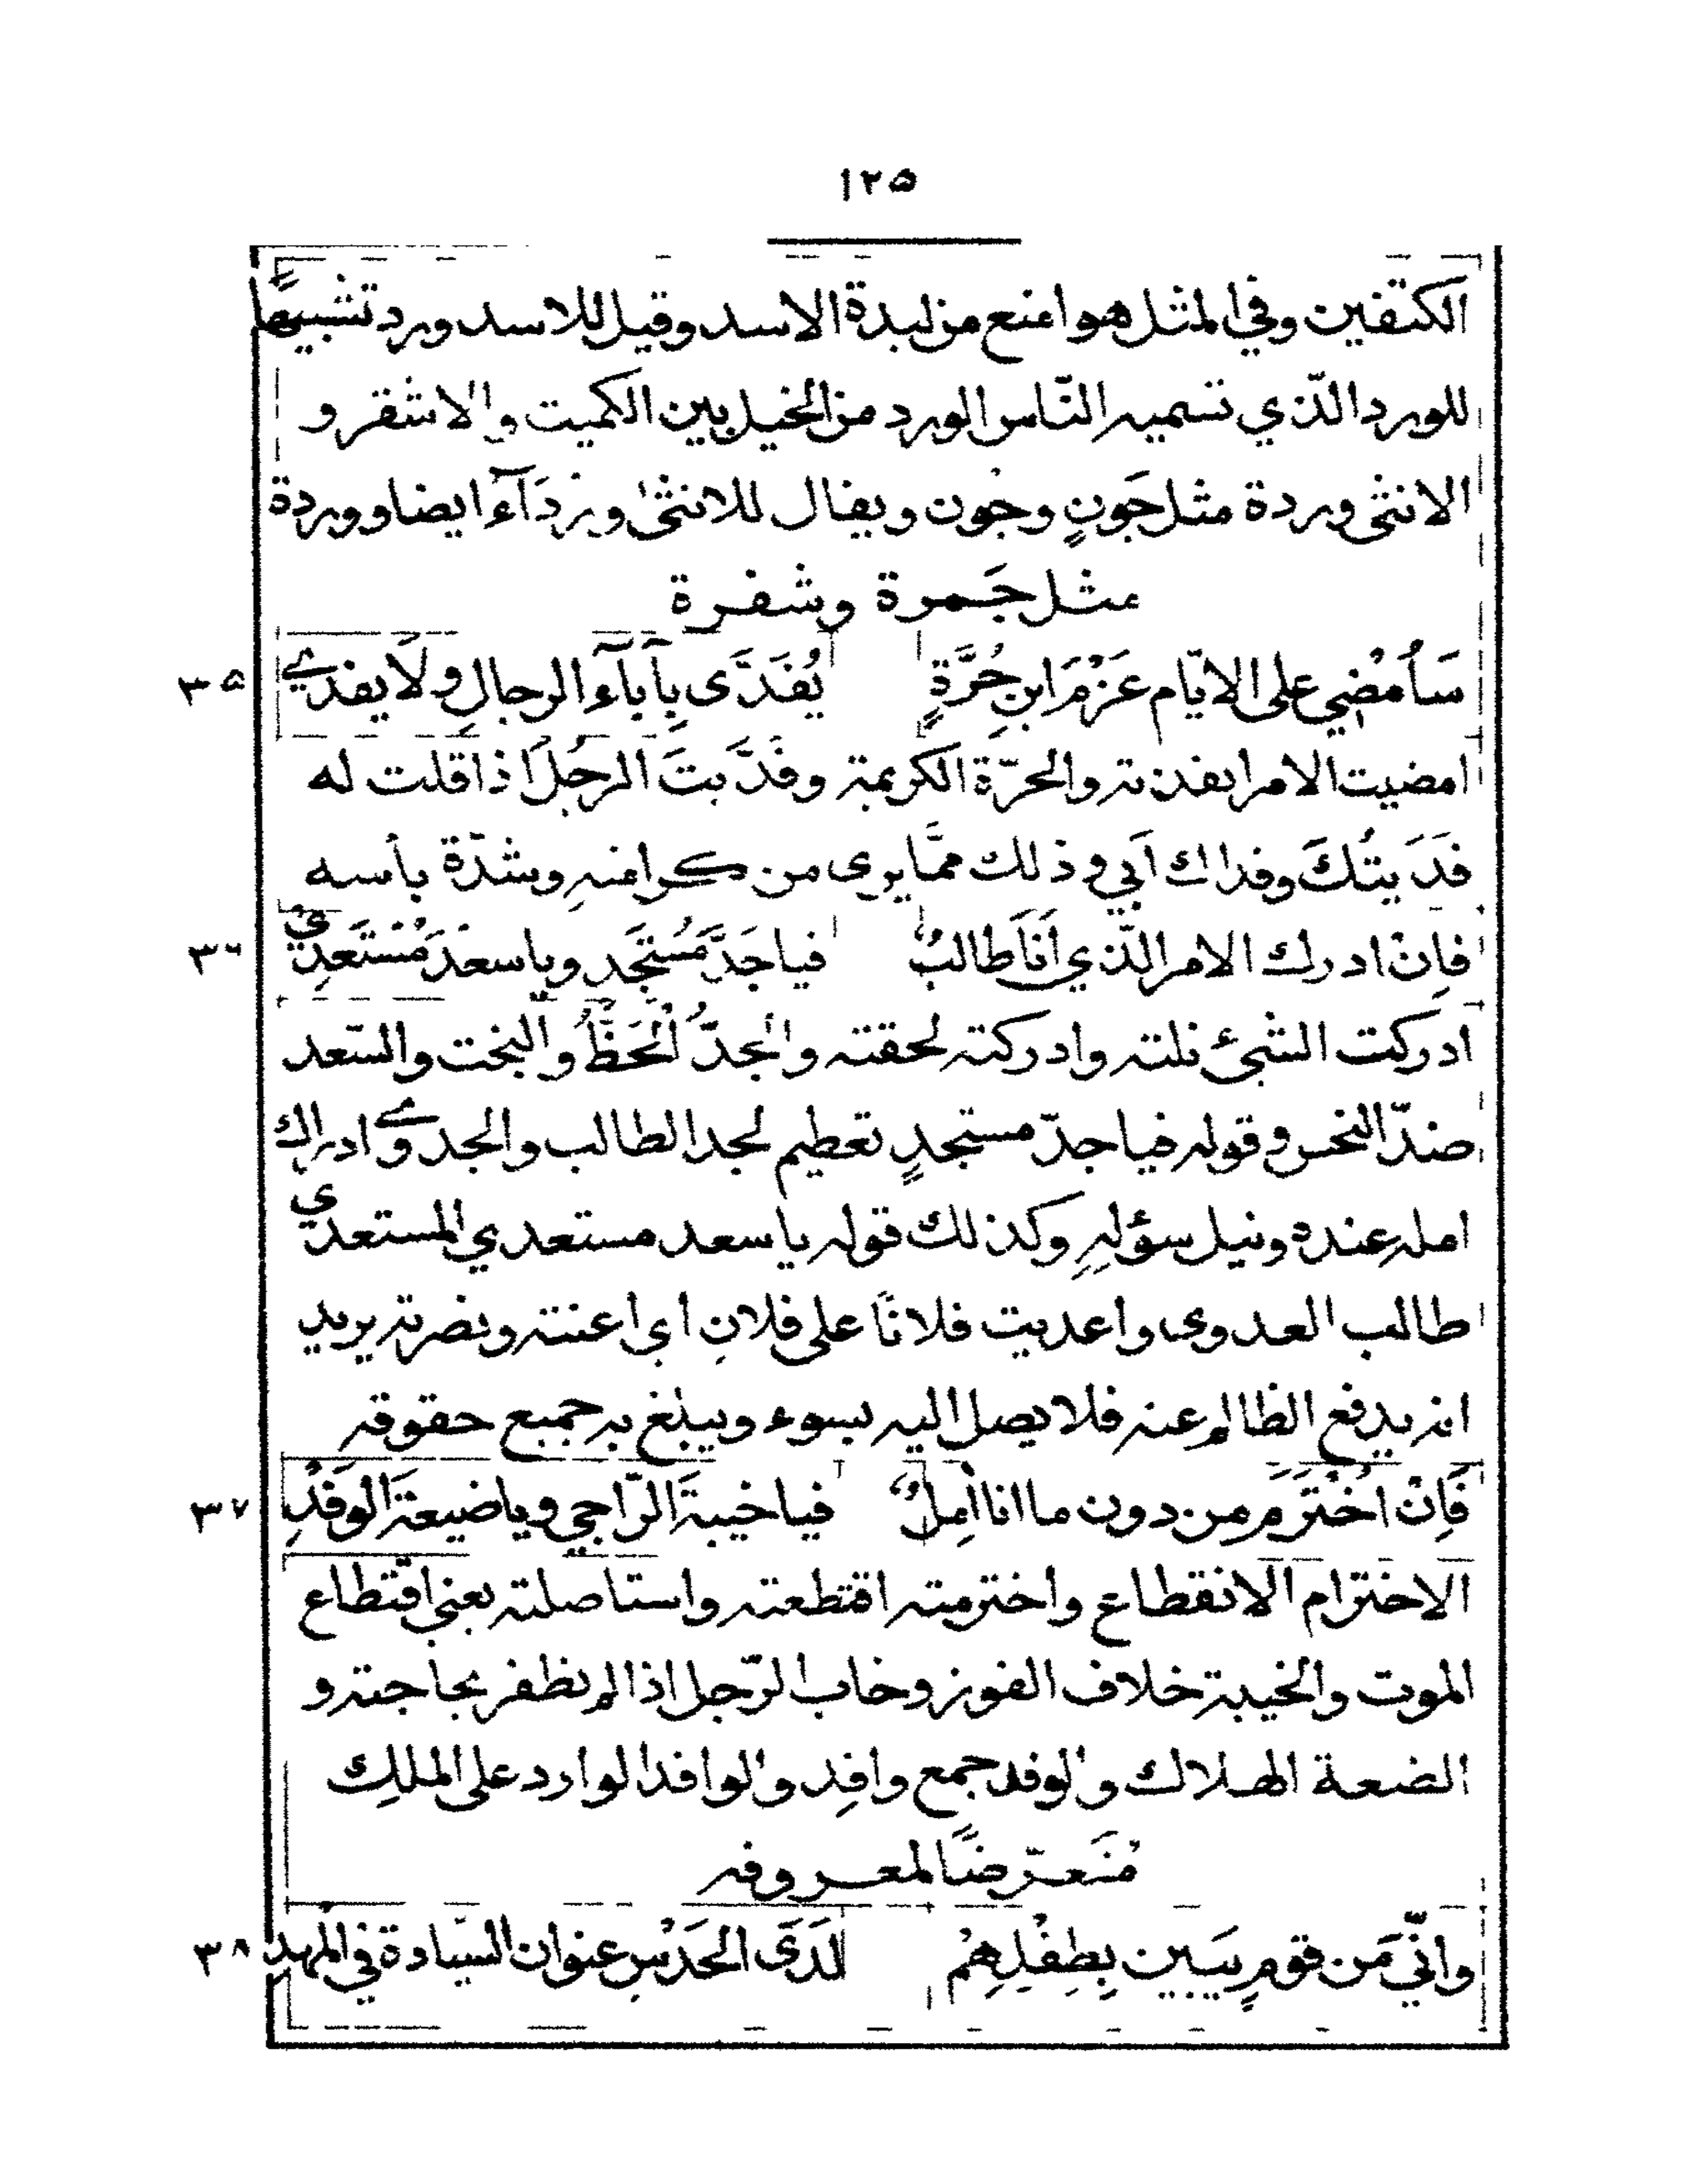 ١٢٥
الكتفين وفي المثل هو امنع من لبدة الاسد وقيل للاسد ورد تشبيهًا
للورد الّذي تسميه النّاس الورد من الخيل بين الكميت والاشقر و
الانثى وردة مثل جَونٍ وجُون ويقال للانثى ورْدَآءُ ايضا ووردة
مثل جَمرة وشقرة
سَأُمْضِي على الايّام عَزْمَ ابنِ حُرَّةٍ يُفَدَّى بِآبآءِ الرجالِ ولَا يفدي ٣٥
امضيت الامر انفذته والحرّة الكريمة وفَدَّيتَ الرجُلَ اذا قلت له
فَدَيتُكَ وفداك اَبي وذلك ممَّا يرى من كرامته وشدّة بأسه
فإِنْ ادرك الامر الّذي أنَا طالبٌ فيا جَدَّ مُسْتَجَدٍ ويا سعدَ مُسْتَعدِي ٣٦
ادركت الشيءَ نلته وادركته لحقته والجدُّ الْحَظُّ والبخت والسّعد
ضدّ النحس وقوله فيا جدّ مستجدٍ تعظيم لجد الطالب والجدوي وادراك
امله عنده ونيل سؤلهِ وكذلك قوله يا سعد مستعدي المستعدي
طالب العدوى واعديت فلانًا على فلانٍ أي اعنته ونصرته يريد
انه يدفع الظالم عنه فلا يصل اليه بسوء ويبلغ به جميع حقوقه
فَإِنْ اُخْتَرَم من دون ما انا آمِلٌ فيا خيبةَ الرّاجي ويا ضيعةَ الوَفْدِ ٣٧
الاخترام الانقطاع واخترمته اقتطعته واستاصلته يعني اقتطاع
الموت والخيبة خلاف الفوز وخاب الرّجل اذا لم يظفر بحاجته و
الضعة الهلاك والوفد جمع وافِد والوافد الوارد على الملِك
مُتَعرّضًا لمعروفه
وانّي مَن قومٍ يَبين بِطِفْلِهِمْ لَدَى الحَدْسِ عنوان السّيادة في المهد ٣٨